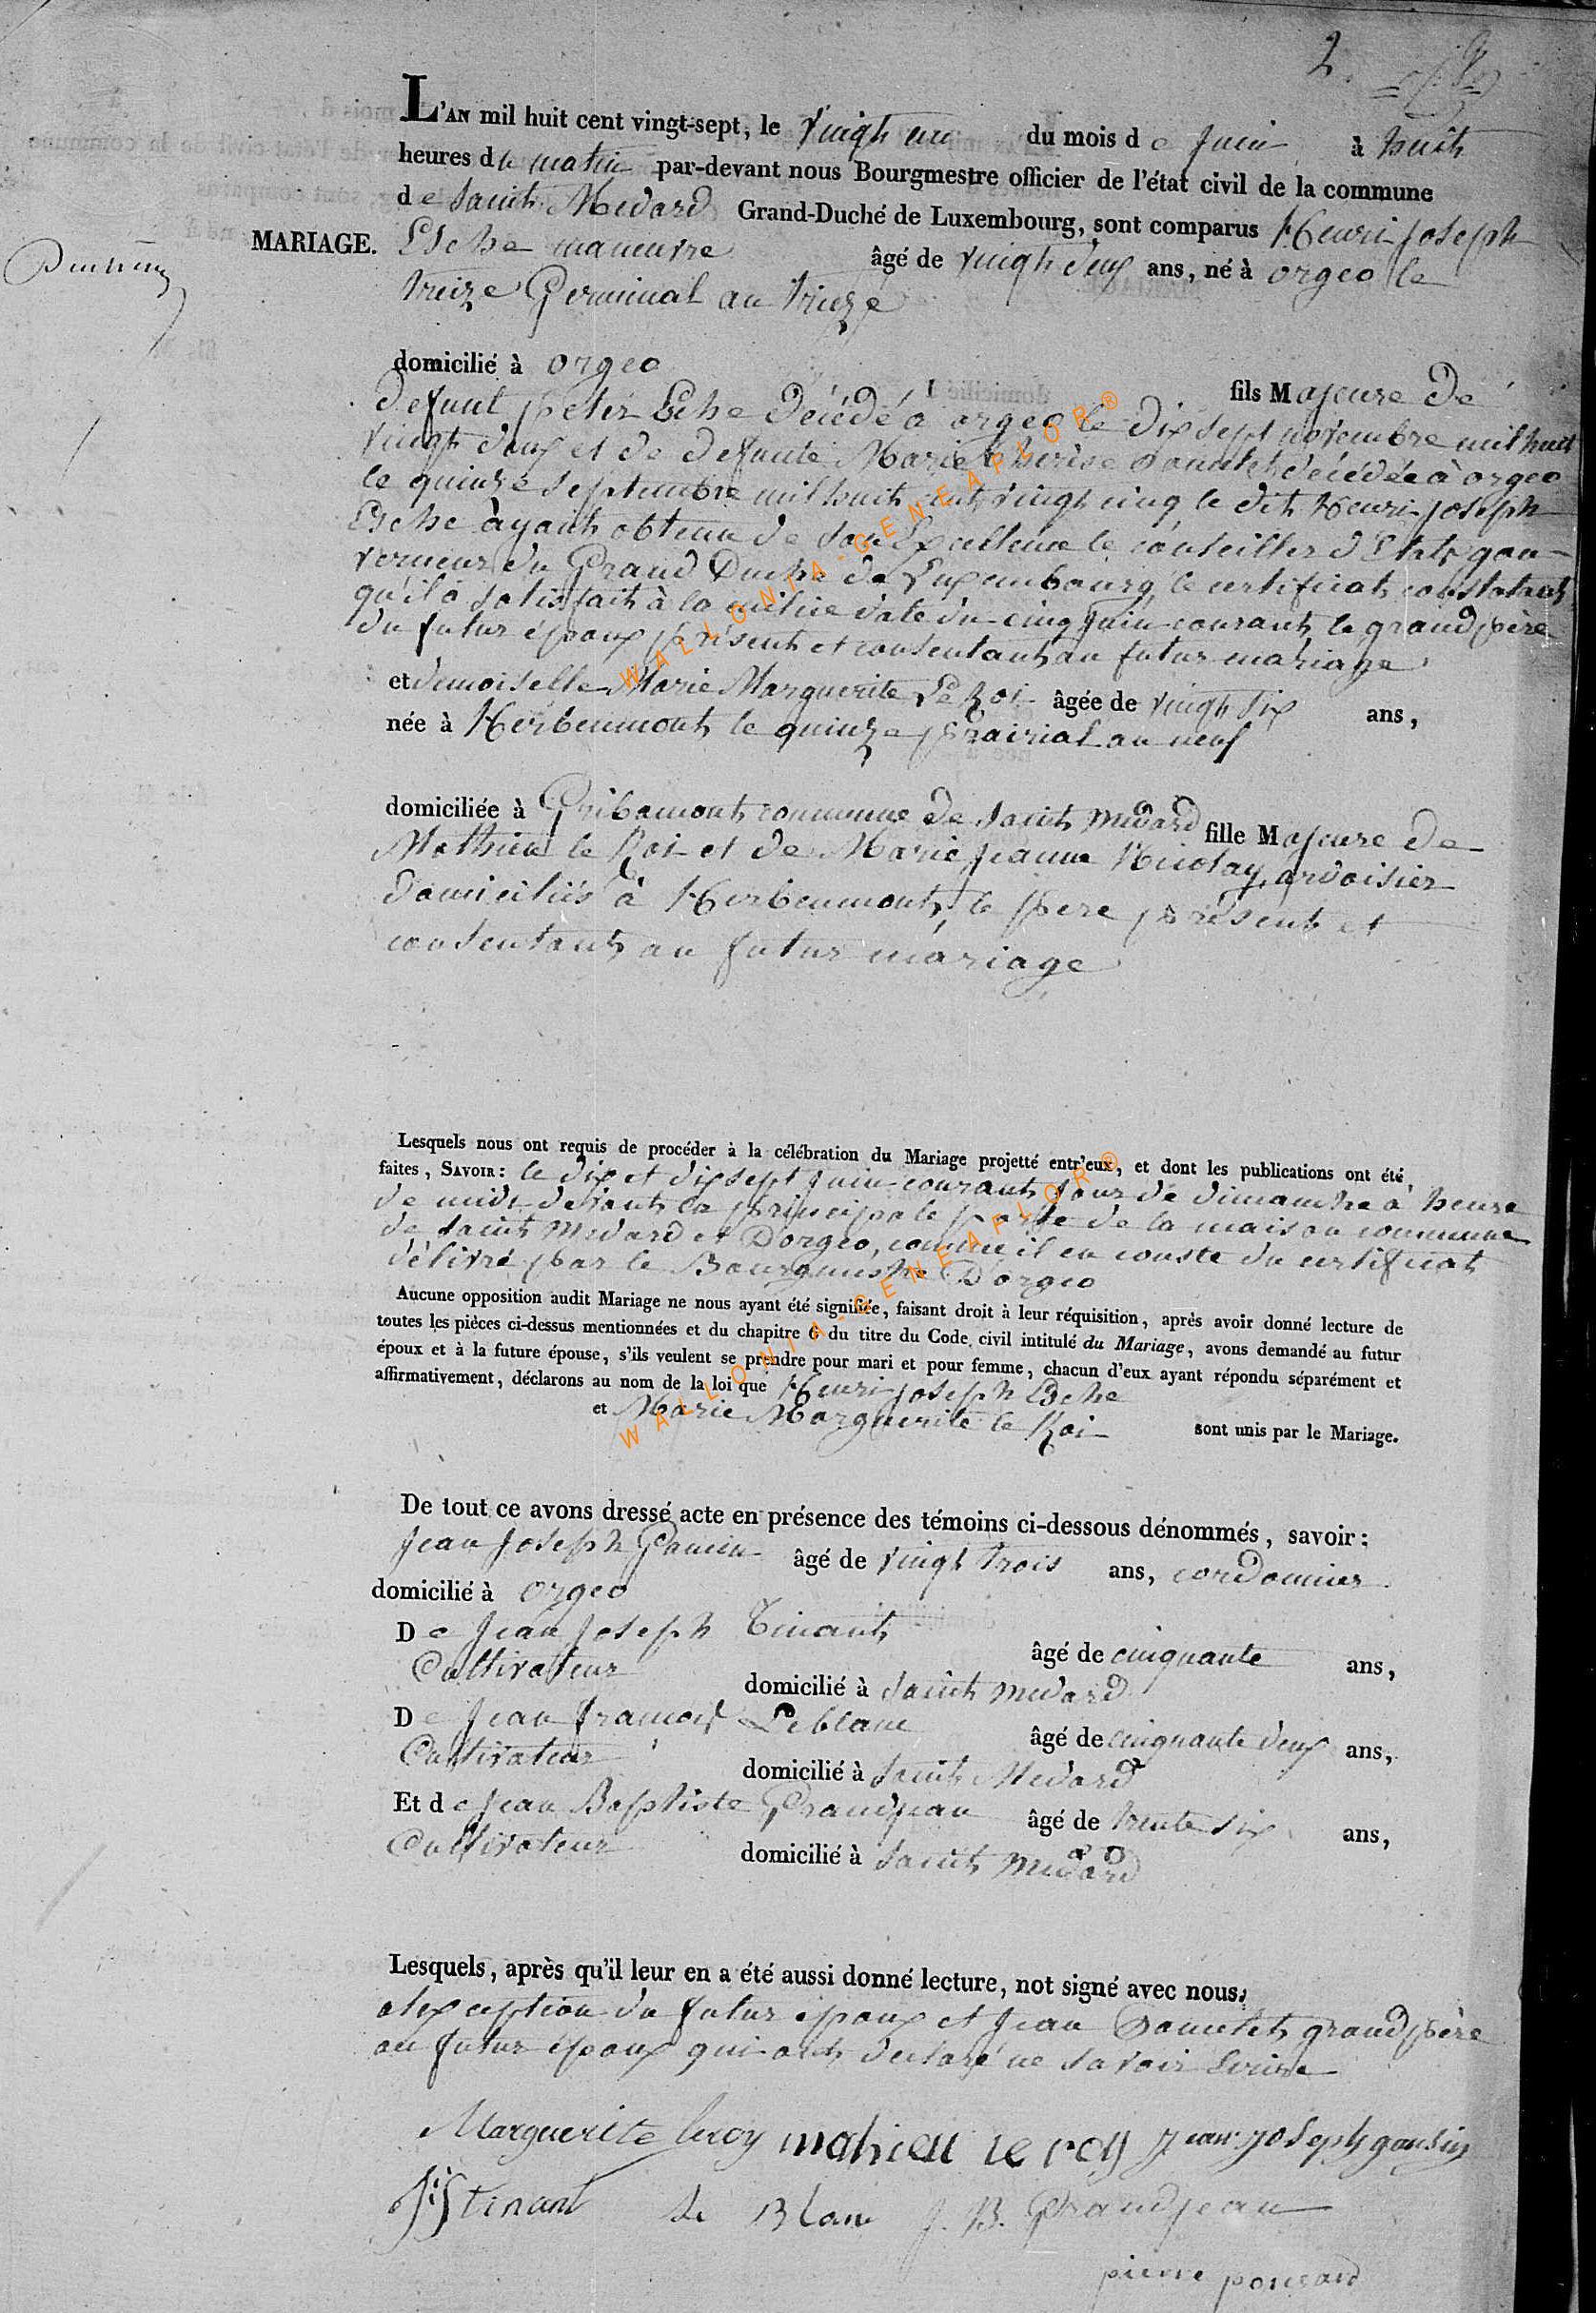 2.
L'AN mil huit cent vingt-sept, le vingt un du mois de juin à huit
heures du matin par-devant nous Bourgmestre officier de l'état civil de la commune
de Saint Medard Grand-Duché de Luxembourg, sont comparus Henri joseph
MARIAGE. Esche maneuvre âgé de vingt deux ans, né à orgeo le
treize Germinal an treize
domicilié à orgeo fils Majeure de
defunt peter Eche décédé a orgeo le dix sept novembre mil huit
vingt deux et de defunte Marie therèse décédée à orgeo
le quinze septembre mil huit cent vingt cinq le dit henri joseph
Esche àyant obtenu de son Excellence le conseiller d'Etat gou-
verneur du Grand Duché de Luxembourg, le certificat constatant
qu'il a satisfait à la milice date du cinq juin courant le grand père
du futur époux présent et consentant au futur mariage
et demoiselle Marie Marguerite Le Roi âgée de vingt six ans,
née à Herbeumont le quinze prairial an neuf
domiciliée à Gribomont commune de Saint Medard fille Majeure de
Mathieu le Roi et de Marie jeanne Nicolay, ardoisier
domiciliés à Herbeumont, le pere présent et
consentant au futur mariage
Lesquels nous ont requis de procéder à la célébration du Mariage projetté entr'eux, et dont les publications ont été
faites, SAVOIR: le dix et dix sept juin courant jour de dimanche à heure
de midi devant la principale porte de la maison commune
de Saint Medard et D'orgeo, comme il en conste du certificat
délivré par le Bourgmestre D'orgeo
Aucune opposition audit Mariage ne nous ayant été signifiée, faisant droit à leur réquisition, après avoir donné lecture de
toutes les pièces ci-dessus mentionnées et du chapitre 6 du titre du Code civil intitulé du Mariage, avons demandé au futur
époux et à la future épouse, s'ils veulent se prendre pour mari et pour femme, chacun d'eux ayant répondu séparément et
affirmativement, déclarons au nom de la loi que Henri joseph Eche
et Marie Marguerite le Roi sont unis par le Mariage.
De tout ce avons dressé acte en présence des témoins ci-dessous dénommés, savoir:
Jean joseph âgé de vingt trois ans, cordonnier
domicilié à orgeo
De Jean joseph Tinant âgé de cinquante ans,
Cultivateur domicilié à Saint Medard
De Jean françois Leblanc âgé de cinquante deux ans,
Cultivateur domicilié à Saint Medard
Et de Jean Baptiste Grandjean âgé de trente six ans,
Cultivateur domicilié à Saint Medard
Lesquels, après qu'il leur en a été aussi donné lecture, not signé avec nous,
alexception du futur époux et Jean grand père
au futur époux qui ont declaré ne savoir Ecrire
Marguerite leroy mahieu le roy jean joseph
JJ tinant le Blanc J. B. Grandjean
pierre poncard
WALLONIA-GENEAFLOR®
WALLONIA-GENEAFLOR®